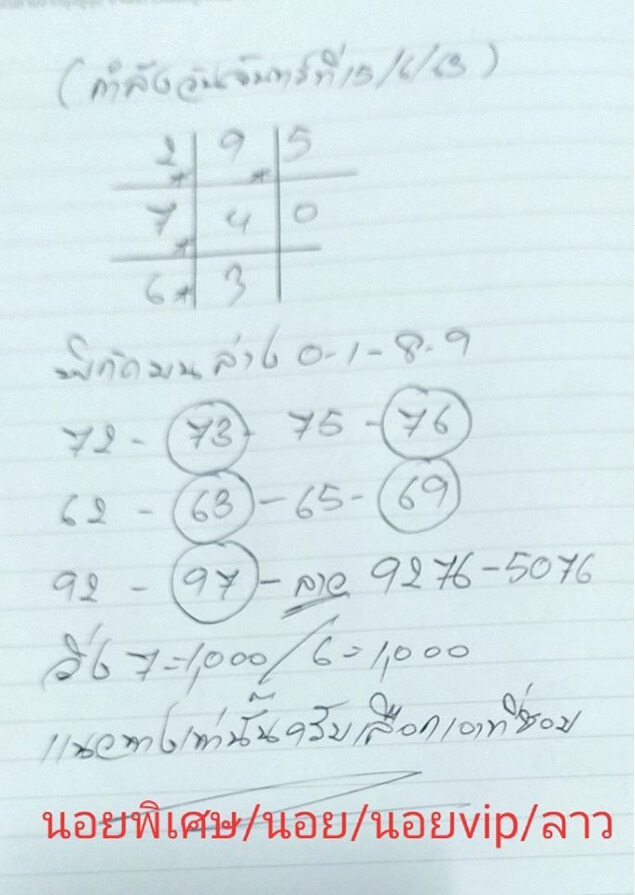 (กำลังวันจันทร์ที่15/6/63)
2 9 5
7 4 0
6 3
พิกัดบนล่าง 0-1-8-9
72 - 73 - 75 - 76
62 - 63 - 65 - 69
92 - 97 - ลาว 9276-5076
วิ่ง 7=1,000/6=1,000
แนวทางเท่านั้นครับเลือกเอาที่ชอบ
นอยพิเศษ/นอย/นอยvip/ลาว